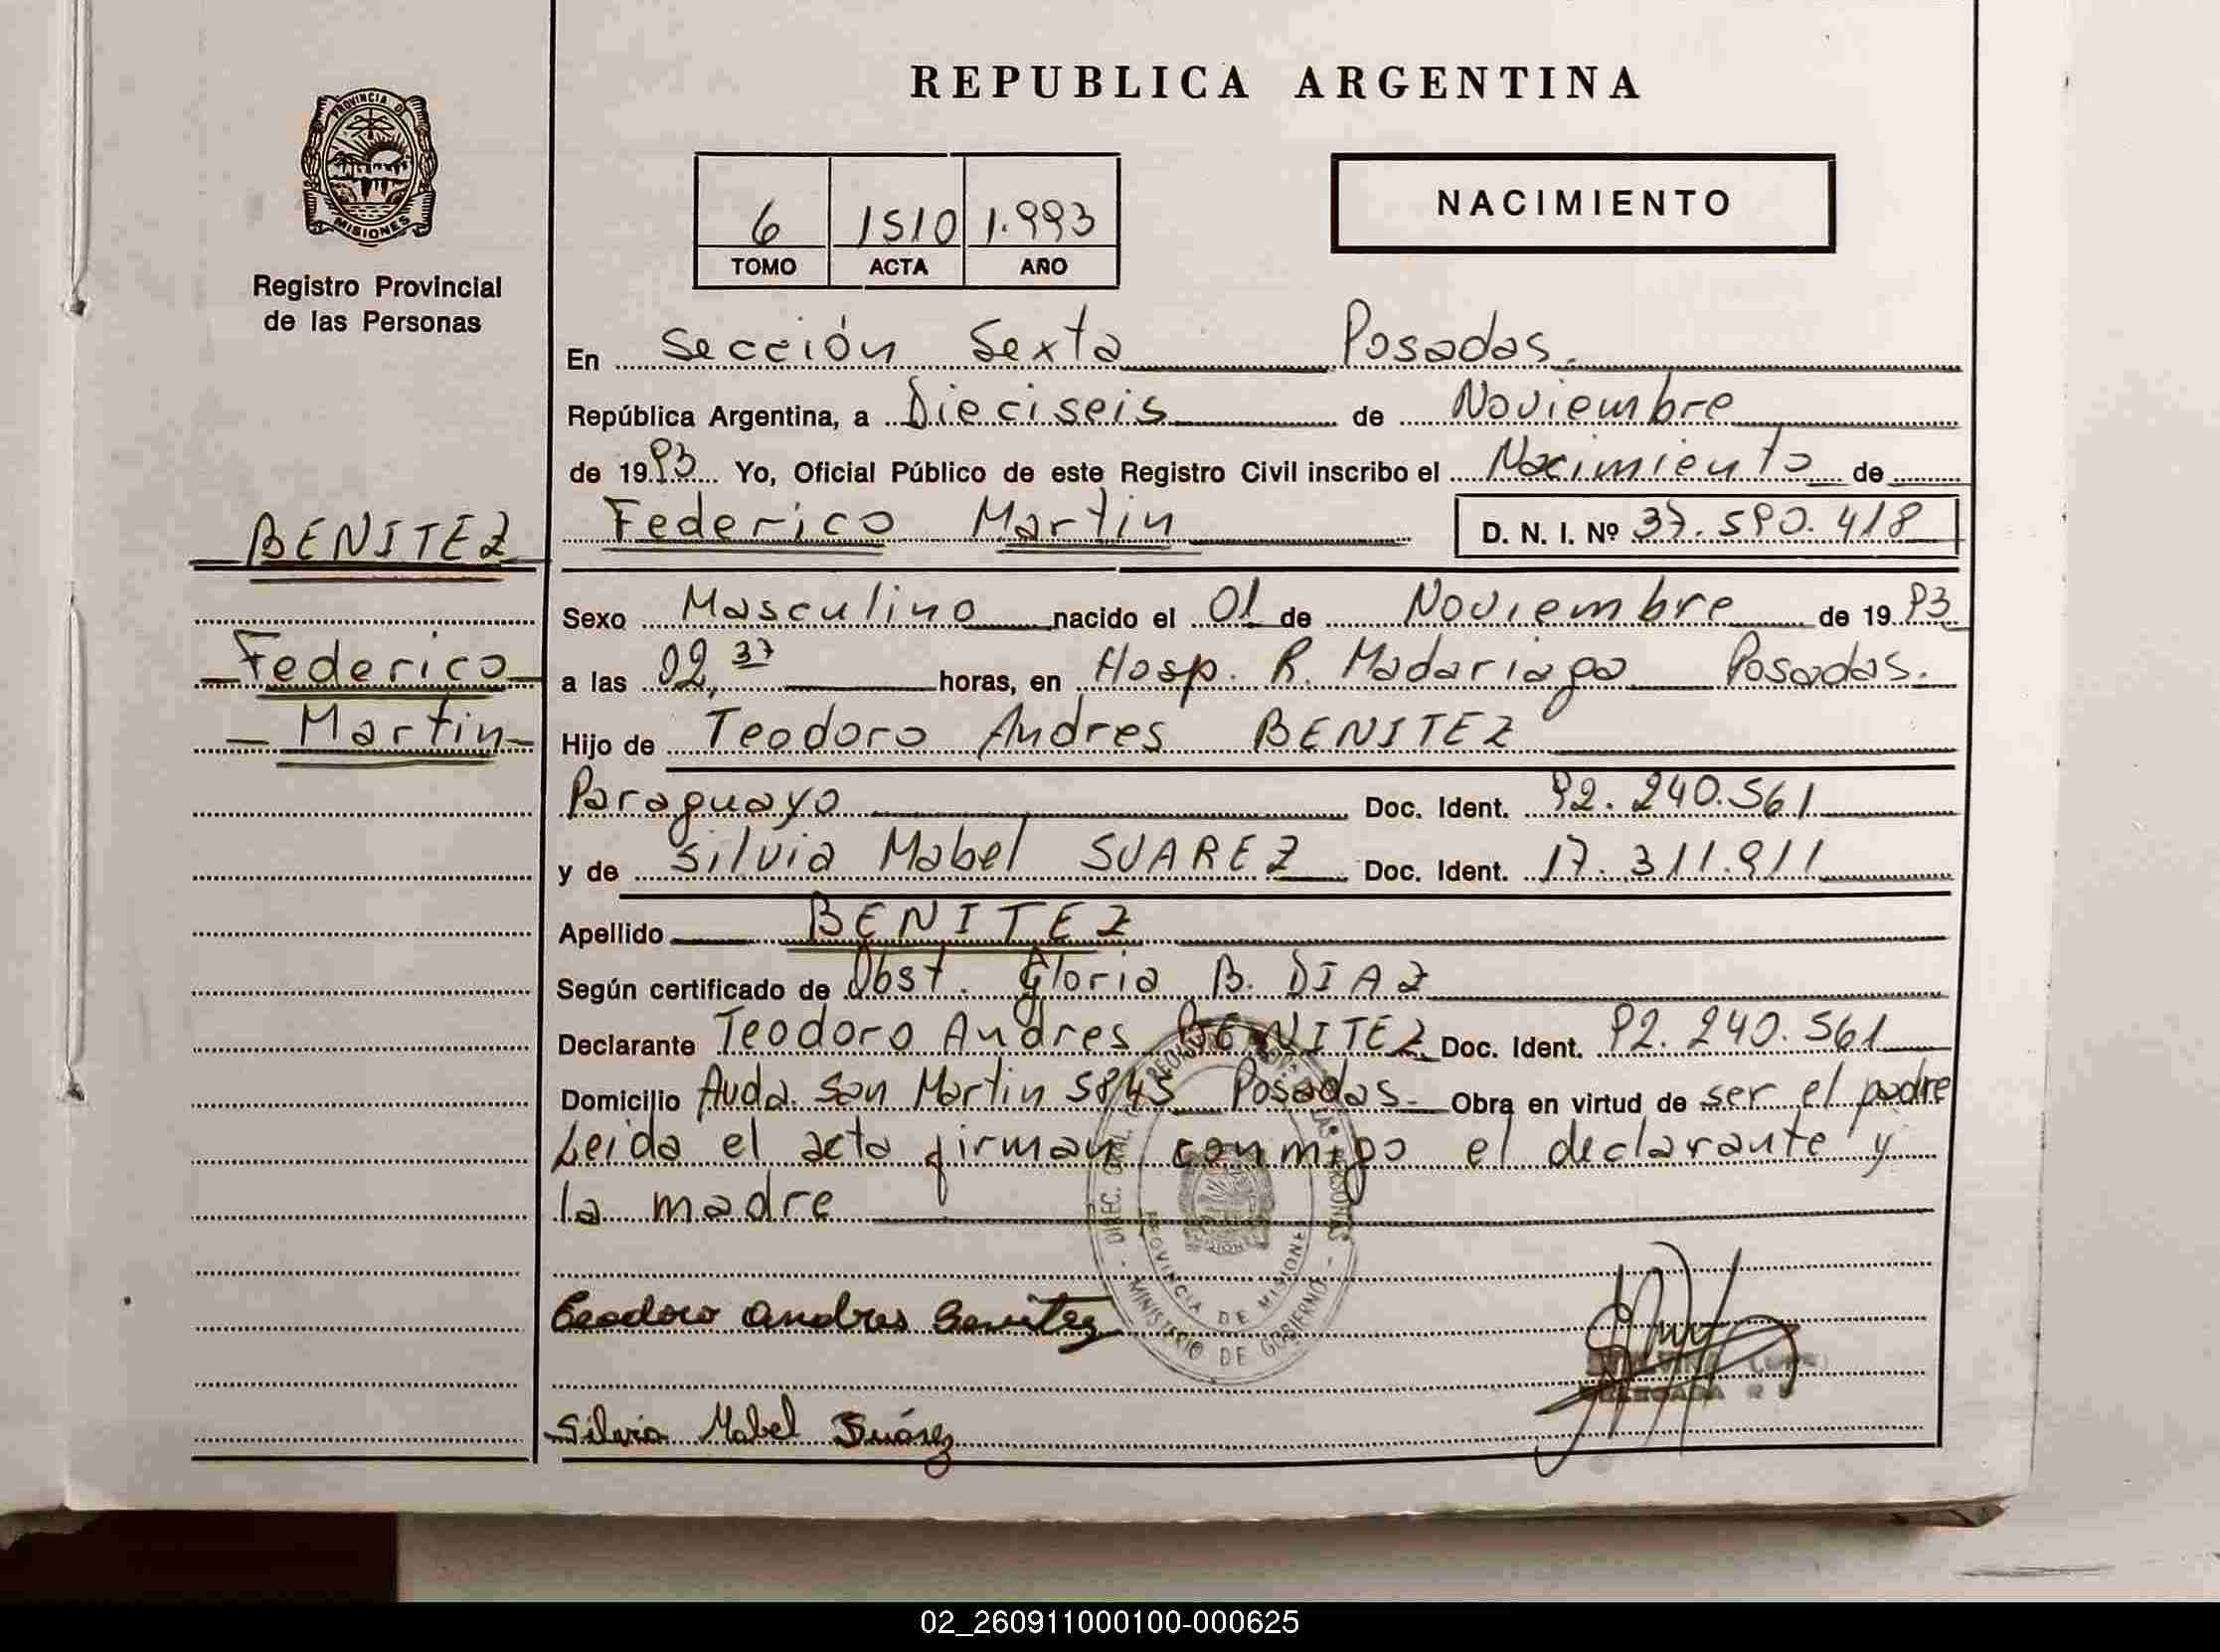 REPUBLICA ARGENTINA
PROVINCIA DE
MISIONES
Registro Provincial
de las Personas
NACIMIENTO
6 1510 1.993
TOMO ACTA AÑO
En Sección Sexta Posadas.
República Argentina, a Dieciseis de Noviembre
de 1993 Yo, Oficial Público de este Registro Civil inscribo el Nacimiento de
BENITEZ
Federico Martin D. N. I. Nº 37.590.418
Sexo Masculino nacido el 01 de Noviembre de 1993
Federico
a las 02,37 horas, en Hosp. R. Madariaga Posadas.
Martin
Hijo de Teodoro Andres BENITEZ
Paraguayo Doc. Ident. 92.240.561
y de Silvia Mabel SUAREZ Doc. Ident. 17.311.911
Apellido BENITEZ
Según certificado de Obst. Gloria B. DIAZ
Declarante Teodoro Andres BENITEZ Doc. Ident. 92.240.561
Domicilio Avda. San Martin 5845 Posadas. Obra en virtud de ser el padre
Leida el acta firman conmigo el declarante y
la madre
PROVINCIA DE MISIONES
MINISTERIO DE GOBIERNO
Teodoro Andres Benitez
Silvia Mabel Suárez
02_260911000100-000625